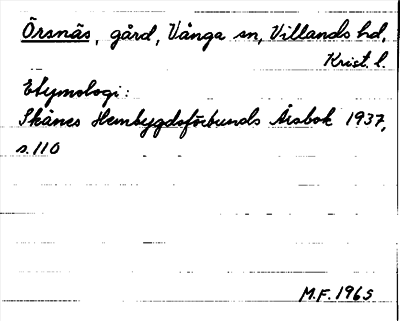 Örsnäs, gård, Vånga sn, Villands hd,
Krist. l.
Etymologi:
Skånes Hembygdsförbunds Årsbok 1937,
s. 110
M.F. 1965